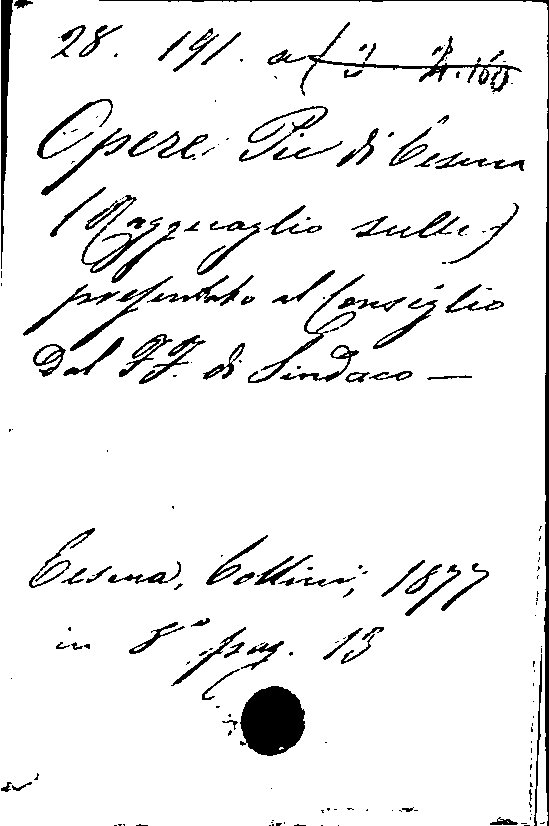 28. 191. a (3 Z. 160
Opere Pie di Cesena
(Ragguaglio sulle)
presentato al Consiglio
Dal FF. di Sindaco —
Cesena, Collini, 1877
in 8° pag. 13